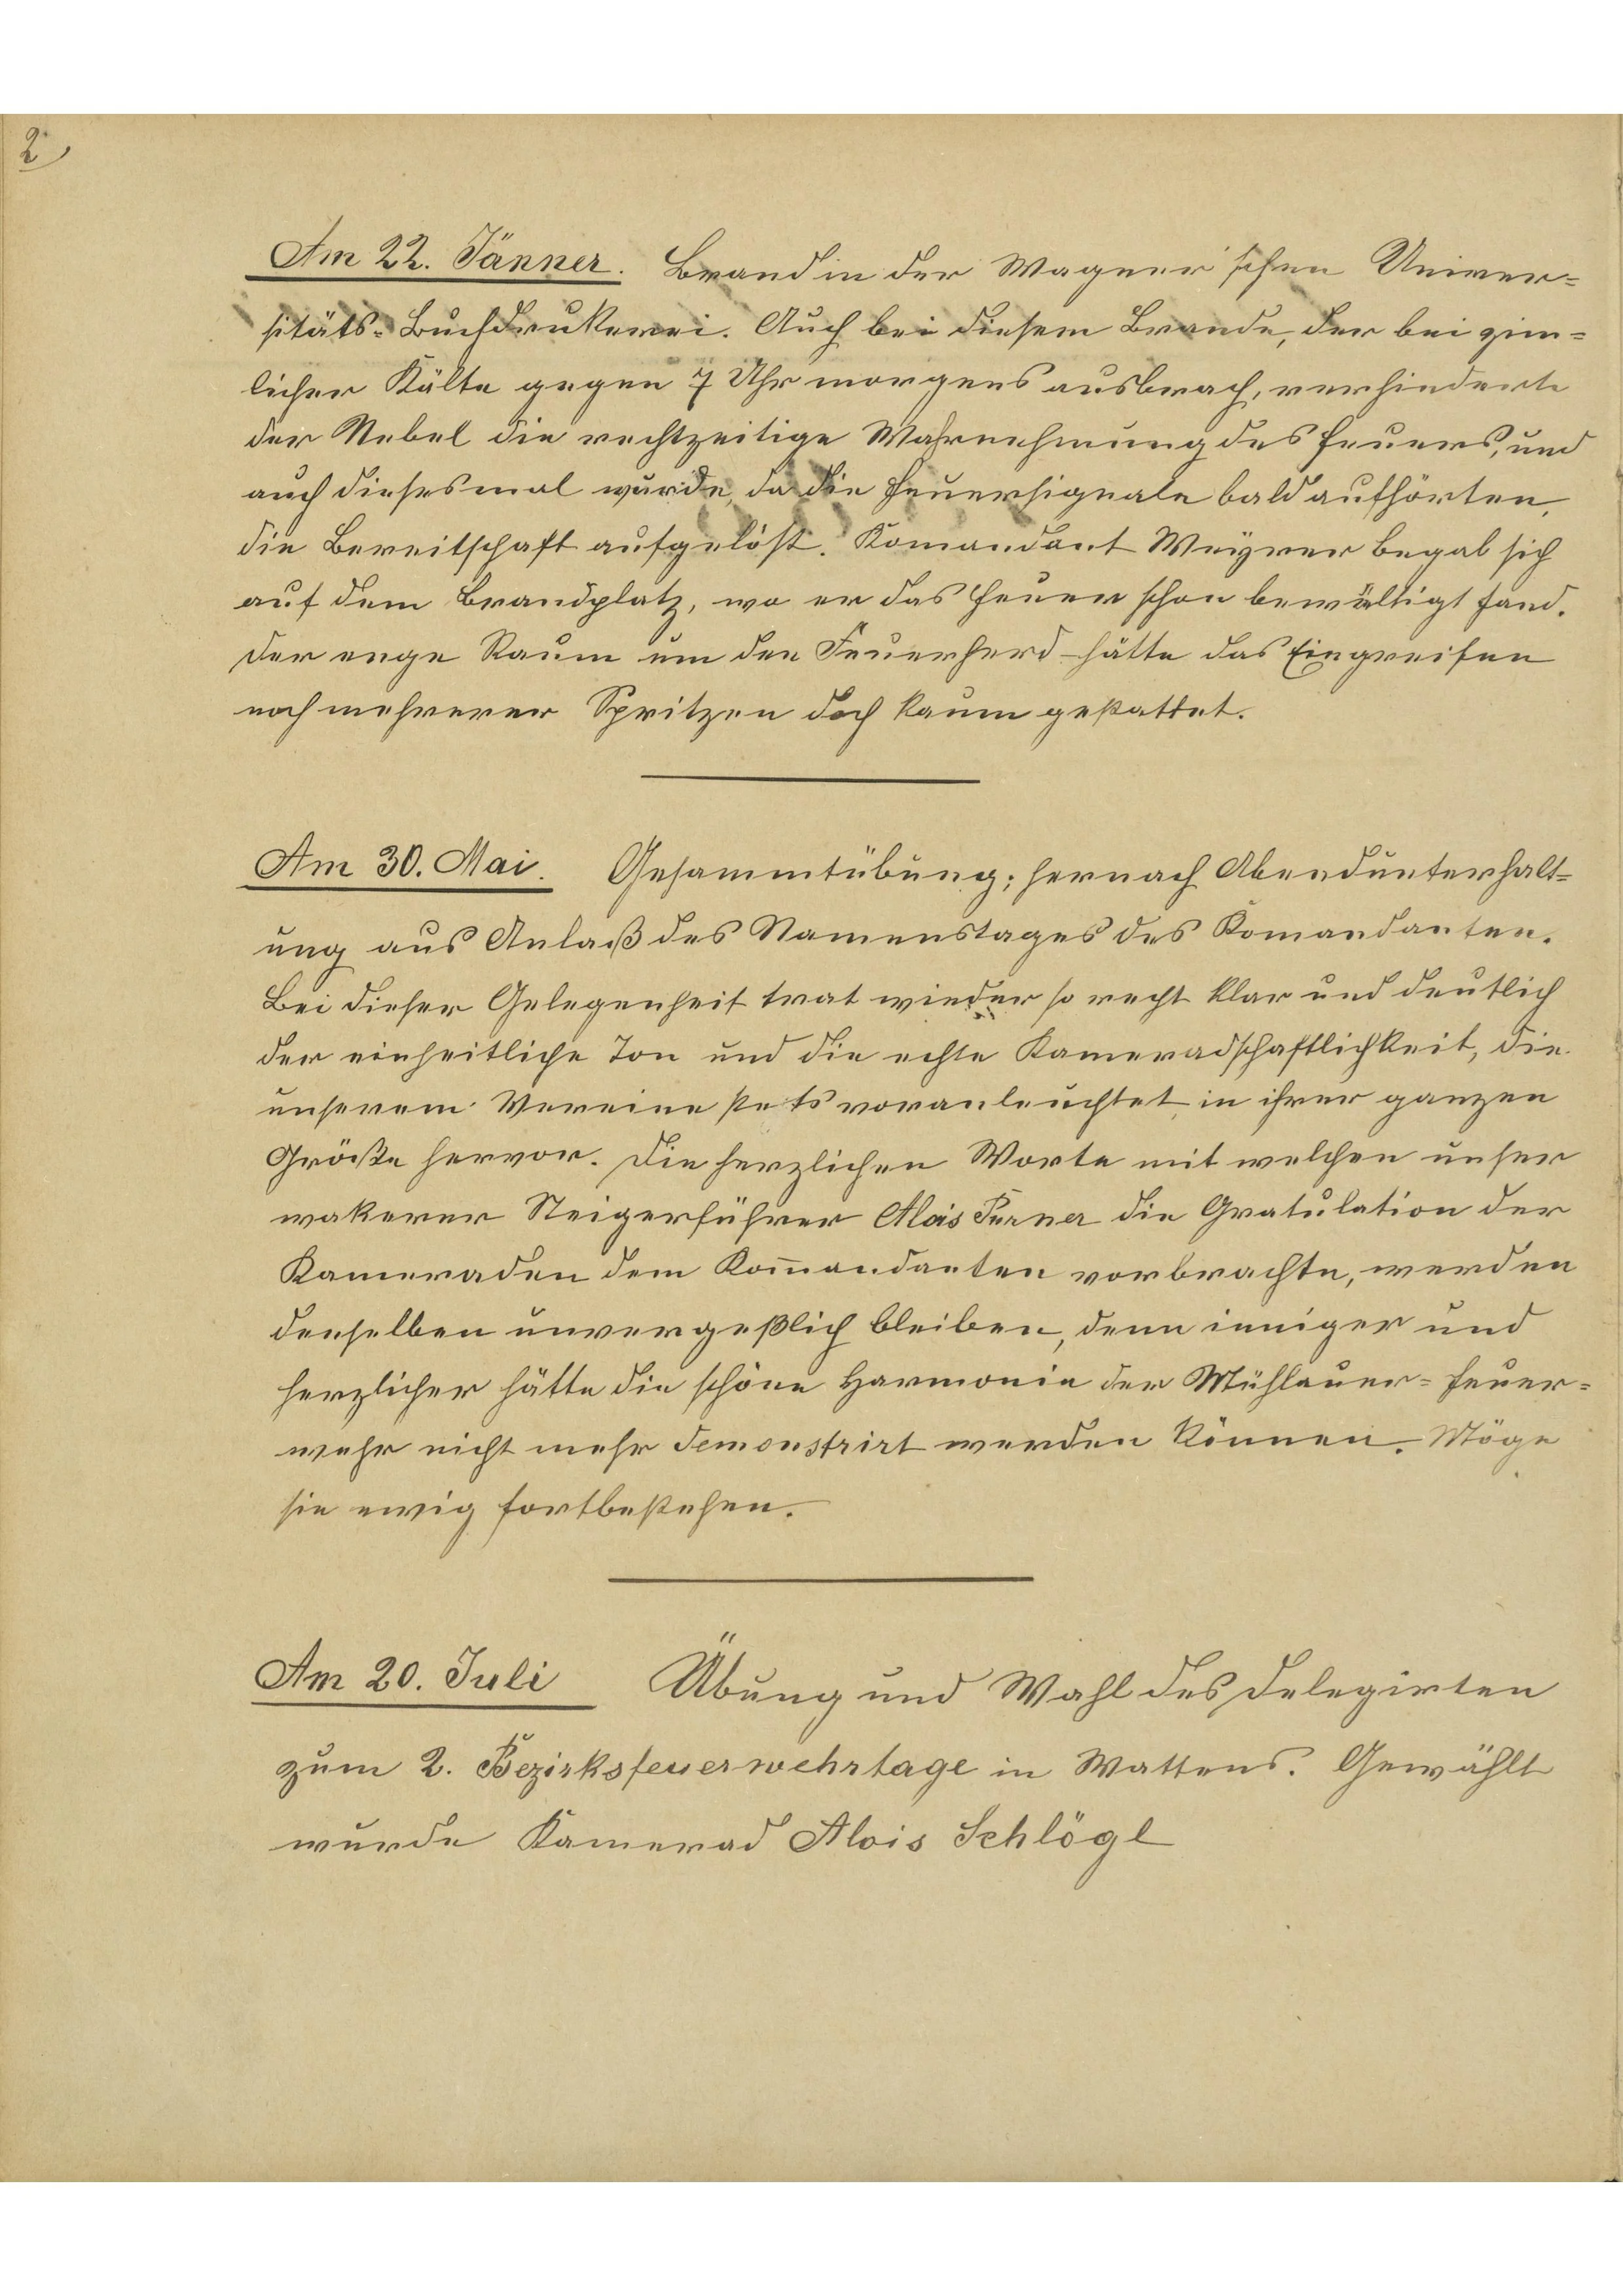 2
Am 22. Jänner. Brand in der Wagner'schen Univer=
sitäts-Buchdrukerei. Auch bei diesem Brande, der bei zim=
licher Kälte gegen 7 Uhr morgens ausbrach, verhinderte
der Nebel die rechtzeitige Wahrnehmung des Feuers, und
auch diesesmal wurde, da die Feuersignale bald aufhörten,
die Bereitschaft aufgelöst. Komandant Weyrer begab sich
auf dem Brandplatz, wo er das Feuer schon bewältigt fand.
Der enge Raum um den Feuerherd hätte das Eingreifen
noch mehrerer Spritzen doch kaum gestattet.
Am 30. Mai. Gesammtübung; hernach Abendunterhalt=
ung aus Anlaß des Namenstages des Komandanten.
Bei dieser Gelegenheit trat wieder so recht klar und deutlich
der einheitliche Ton und die echte Kameradschaftlichkeit, die
unserem Vereine stets voranleuchtet, in ihrer ganzen
Größe hervor. Die herzlichen Worte mit welchen unser
wakerer Steigerführer Alois Purner die Gratulation der
Kameraden dem Kom̄andanten vorbrachte, werden
denselben unvergeßlich bleiben, denn inniger und
herzlicher hätte die schöne Harmonie der Mühlauer-Feuer=
wehr nicht mehr demonstrirt werden können. Möge
sie ewig fortbestehen.
Am 20. Juli Übung und Wahl des Delegirten
zum 2. Bezirksfeuerwehrtage in Wattens. Gewählt
wurde Kamerad Alois Schlögl